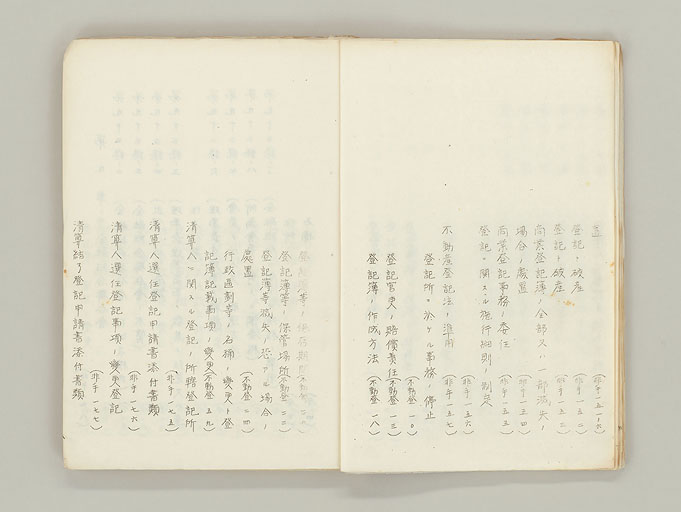 (非手一五一ノ六)
登記ト破産
登記ト破産
(非手一五二)
商業登記簿ノ全部又ハ一部滅失ノ
場合ノ處置
(非手一五四)
商業登記事務ノ委任
(非手一五三)
登記ニ関スル施行細則ノ制定
(非手一五六)
不動産登記法ノ準用
(非手一五七)
登記所ニ於ケル事務ノ停止
(不動登一〇)
登記官吏ノ賠償責任
(不動登一三)
登記簿ノ作成方法
(不動登一八)
登記簿等ノ保管場所
(不動登二二)
登記簿等滅失ノ恐アル場合ノ
處置
(不動登二四)
行政區劃等ノ名稱ノ変更ト登
記簿記載事項ノ変更
(不動登五九)
清算人ニ関スル登記ノ所轄登記所
清算人選任登記申請書添付書類
(非手一七五)
清算人選任登記事項ノ変更登記
(非手一七六)
清算結了登記申請書添付書類
(非手一七七)